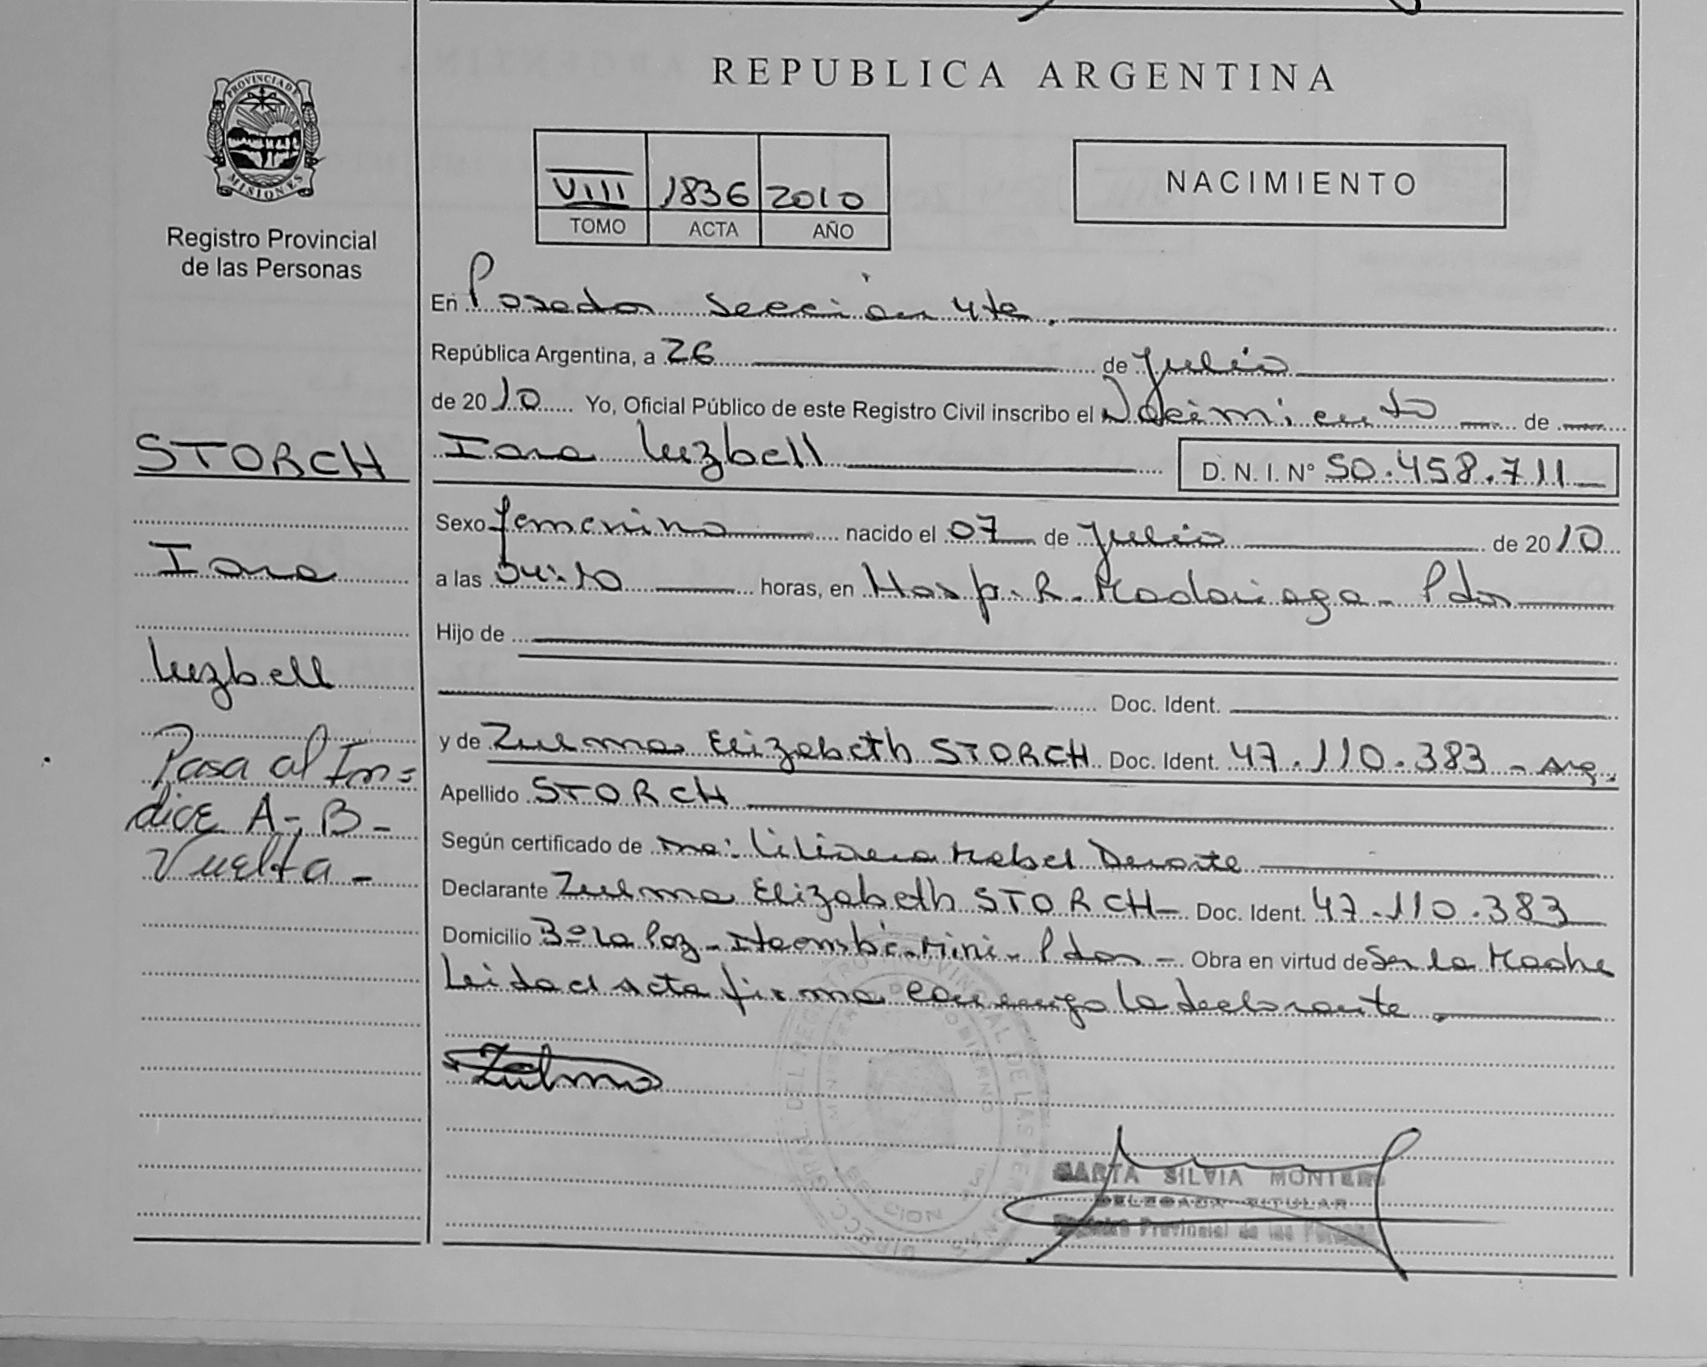 REPUBLICA ARGENTINA
PROVINCIA DE
MISIONES
Registro Provincial
de las Personas
VIII 1836 2010
TOMO ACTA AÑO
NACIMIENTO
En Posadas Sección 4ta.
República Argentina, a 26 de Julio
de 2010 Yo, Oficial Público de este Registro Civil inscribo el Nacimiento de
STORCH
Iara Luzbell D. N. I. Nº 50.458.711
Sexo femenino nacido el 07 de Julio de 2010
Iara
a las horas, en Hosp. R. Madariaga - Pdas
Hijo de
Luzbell
Doc. Ident.
y de Zulma Elizabeth STORCH Doc. Ident. 47.110.383 - Arg.
Pasa al Ín=
dice A-, B-
Vuelta -
Apellido STORCH
Según certificado de Liliana Mabel
Declarante Zulma Elizabeth STORCH - Doc. Ident. 47.110.383
Domicilio Bº La Paz - Itaembé - Mini - Pdas - Obra en virtud de Ser la Madre
Leída el acta firma conmigo la declarante.
Zulma
MARTA SILVIA MONTERO
DELEGADA TITULAR
Registro Provincial de las Personas